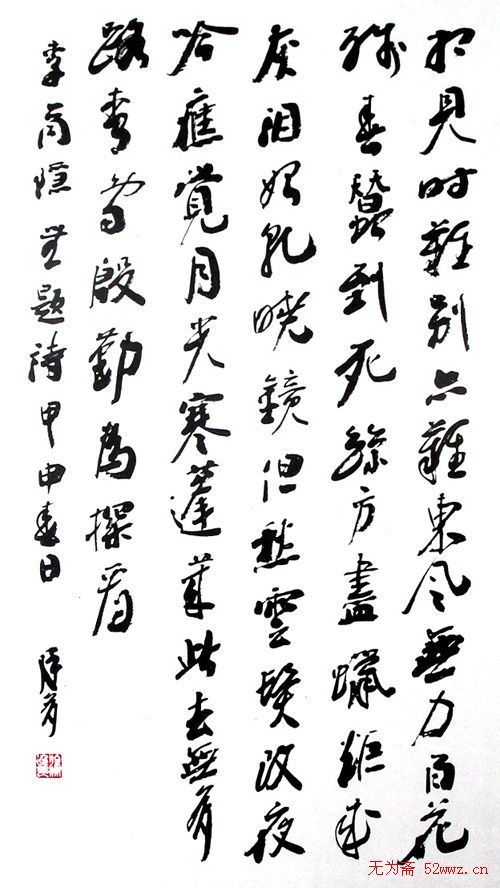 相見时難别亦難東风無力百花
殘春蠶到死絲方盡蠟炬成
灰泪始乾曉鏡但愁雲鬓改夜
吟應覺月光寒蓬萊此去無多
路青鸟殷勤為探看
李商隱無題詩甲申春日
无为斋 52wwz.cn